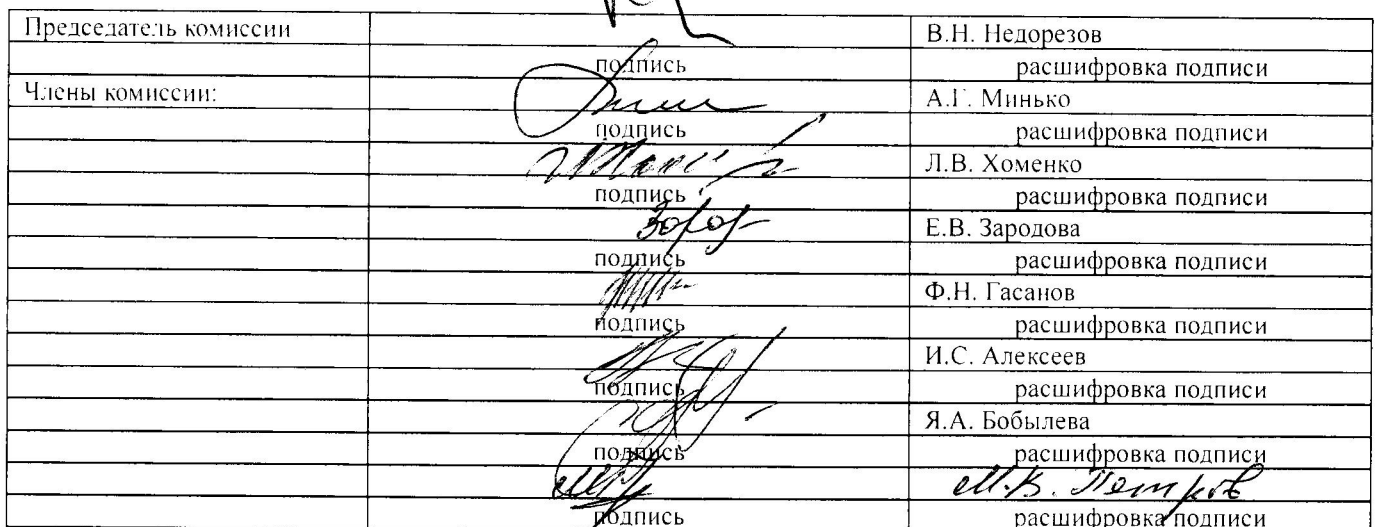 Председатель комиссии В.Н. Недорезов
подпись расшифровка подписи
Члены комиссии: А.Г. Минько
подпись расшифровка подписи
Л.В. Хоменко
подпись расшифровка подписи
Е.В. Зародова
подпись расшифровка подписи
Ф.Н. Гасанов
подпись расшифровка подписи
И.С. Алексеев
подпись расшифровка подписи
Я.А. Бобылева
подпись расшифровка подписи
М.В. Петров
подпись расшифровка подписи